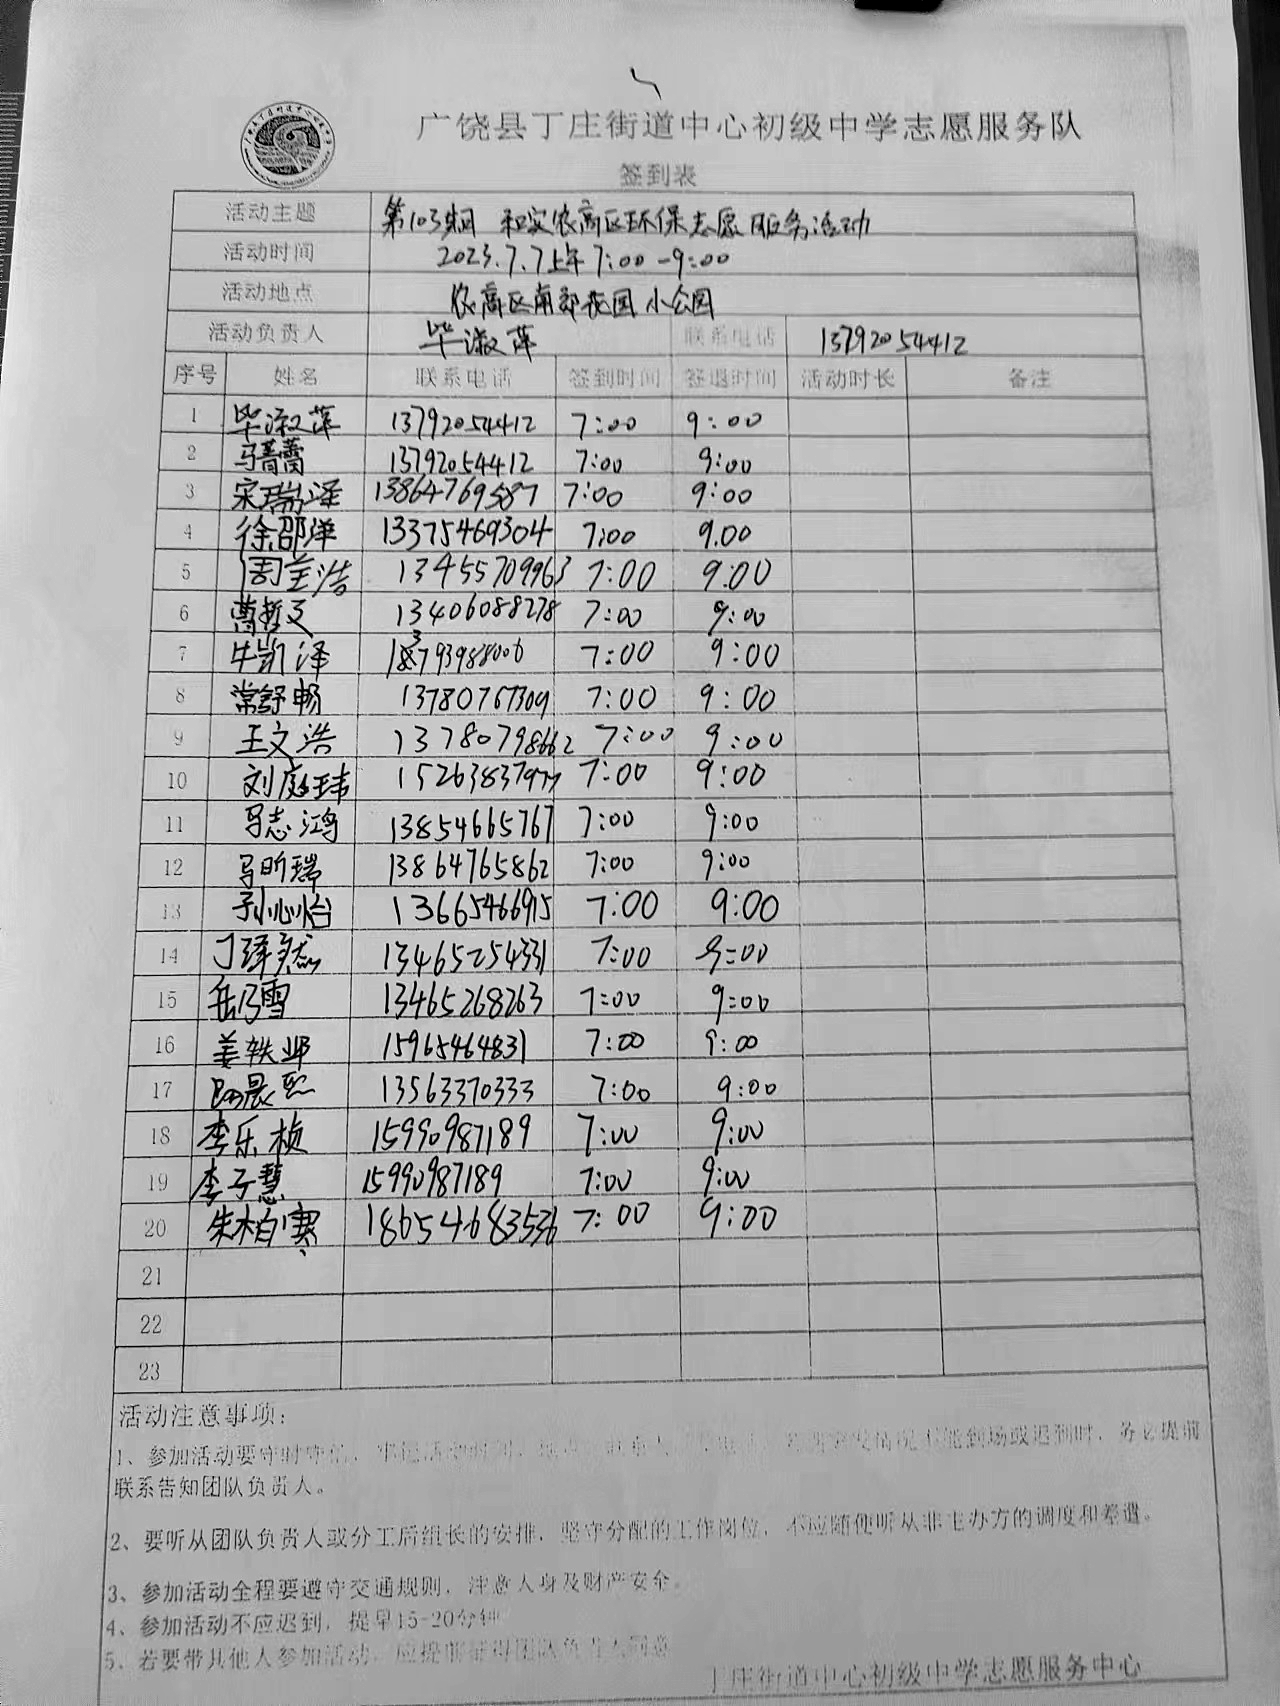 广饶县丁庄街道中心初级中学志愿服务队
签到表
活动主题 第103期 农高区环保志愿服务活动
活动时间 2023.7.7上午7:00-9:00
活动地点 农高区南郊花园小公园
活动负责人 毕淑萍 联系电话 13792054412
序号 姓名 联系电话 签到时间 签退时间 活动时长 备注
1 毕淑萍 13792054412 7:00 9:00
2 马蔷蕾 13792054412 7:00 9:00
3 宋瑞泽 13864769587 7:00 9:00
4 徐邵洋 13375469304 7:00 9.00
5 周 浩 13455709963 7:00 9:00
6 曹哲文 13406088278 7:00 9:00
7 牛凯泽 7:00 9:00
8 常舒畅 13780767309 7:00 9:00
9 王文浩 13780798662 7:00 9:00
10 刘庭玮 7:00 9:00
11 马志鸿 13854665767 7:00 9:00
12 马昕瑞 13864765862 7:00 9:00
13 孙心怡 13665466915 7:00 9:00
14 丁泽 13465254331 7:00 9:00
15 岳乃雪 13465268263 7:00 9:00
16 姜轶 15965464831 7:00 9:00
17 晨熙 13563370333 7:00 9:00
18 李乐桢 15990987189 7:00 9:00
19 李子慧 15990987189 7:00 9:00
20 朱柏骞 18654683536 7:00 9:00
21
22
23
活动注意事项:
1、参加活动要守时守信, 不能到场或迟到时，务必提前
联系告知团队负责人。
2、要听从团队负责人或分工后组长的安排，坚守分配的工作岗位，不应随便听从非主办方的调度和差遣。
3、参加活动全程要遵守交通规则，注意人身及财产安全。
4、参加活动不应迟到，提早15-20分钟
5、若要带其他人参加活动，应提前征得团队负责人同意
丁庄街道中心初级中学志愿服务中心